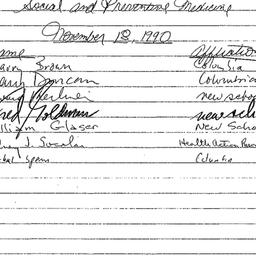 Social and Preventive Medicine
November 18, 1990
ame Affiliation
arry Brown Columbia
arry Duncan Columbia
new schoo
red Goldman new scho
lliam Glaser New Scho
J. Health Action
Spans Columbia